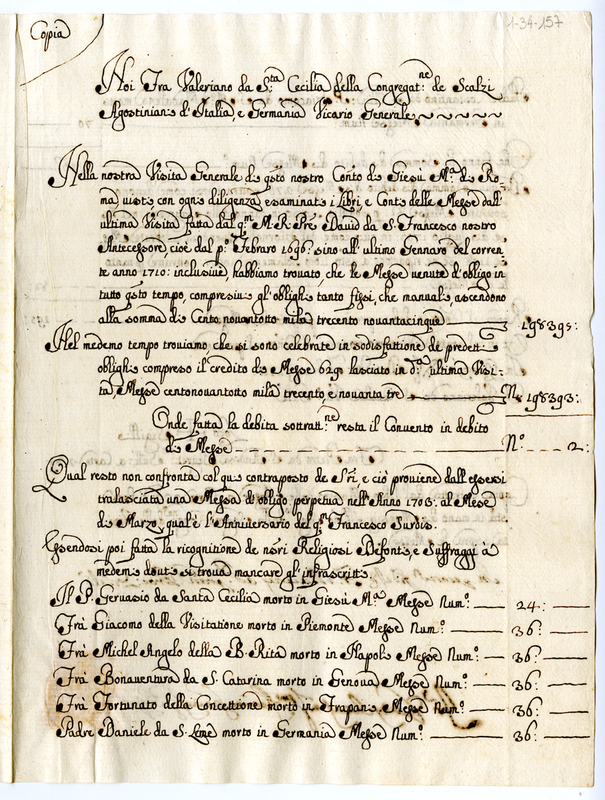 Copia
1-34-157
Noi Fra Valeriano da S.ta Cecilia della Congregat.ne de Scalzi
Agostiniani d'Italia, e Germania Vicario Generale
Nella nostra Visita Generale di qsto nostro Conto di Giesù M.a di Ro-
ma, visti con ogni diligenza, essaminati i Libri, e Conti delle Messe dall'
ultima Visita fatta dal q.m M. R. Pre David da S. Francesco nostro
Antecessore, cioè dal p.o Febraro 1696: sino all'ultimo Gennaro del corren
te anno 1710: inclusiuè, habbiamo trouato, che le Messe uenute d'obligo in
tutto qsto tempo, compresiui gl'oblighi tanto fissi, che manuali ascendono
alla somma di Cento nouantotto mila trecento nouantacinque 198395:
Nel medemo tempo trouiamo che si sono celebrate in sodisfattione de predetti
oblighi compreso il credito di Messe 629: lasciato in d.a ultima Visi-
ta, Messe centonouantotto mila trecento, e nouanta tre N.o 198393:
Onde fatta la debita sottratt.ne resta il Convento in debito
di Messe N.o 2:
Qual resto non confronta col qui contraposto de Sri, e ciò proviene dall'essersi
tralasciata una Messa di obligo perpetua nell'Anno 1703: al Mese
di Marzo, qual'è l'Anniuersario del q.m Francesco Surdis.
Essendosi poi fatta la ricognitione de nsri Religiosi Defonti, e Suffraggi à
medemi douti si troua mancare gl'infrascritti.
Il P. Geruasio da Santa Cecilia morto in Giesù M.a Messe Num.o 24:
Frà Giacomo della Visitatione morto in Piemonte Messe Num.o 36:
Frà Michel Angelo della B. Rita morto in Napoli Messe Num.o 36:
Frà Bonauentura da S. Catarina morto in Genoua Messe Num.o 36:
Frà Fortunato della Concettione morto in Trapani Messe Num.o 36:
Padre Daniele da S. morto in Germania Messe Num.o 36: